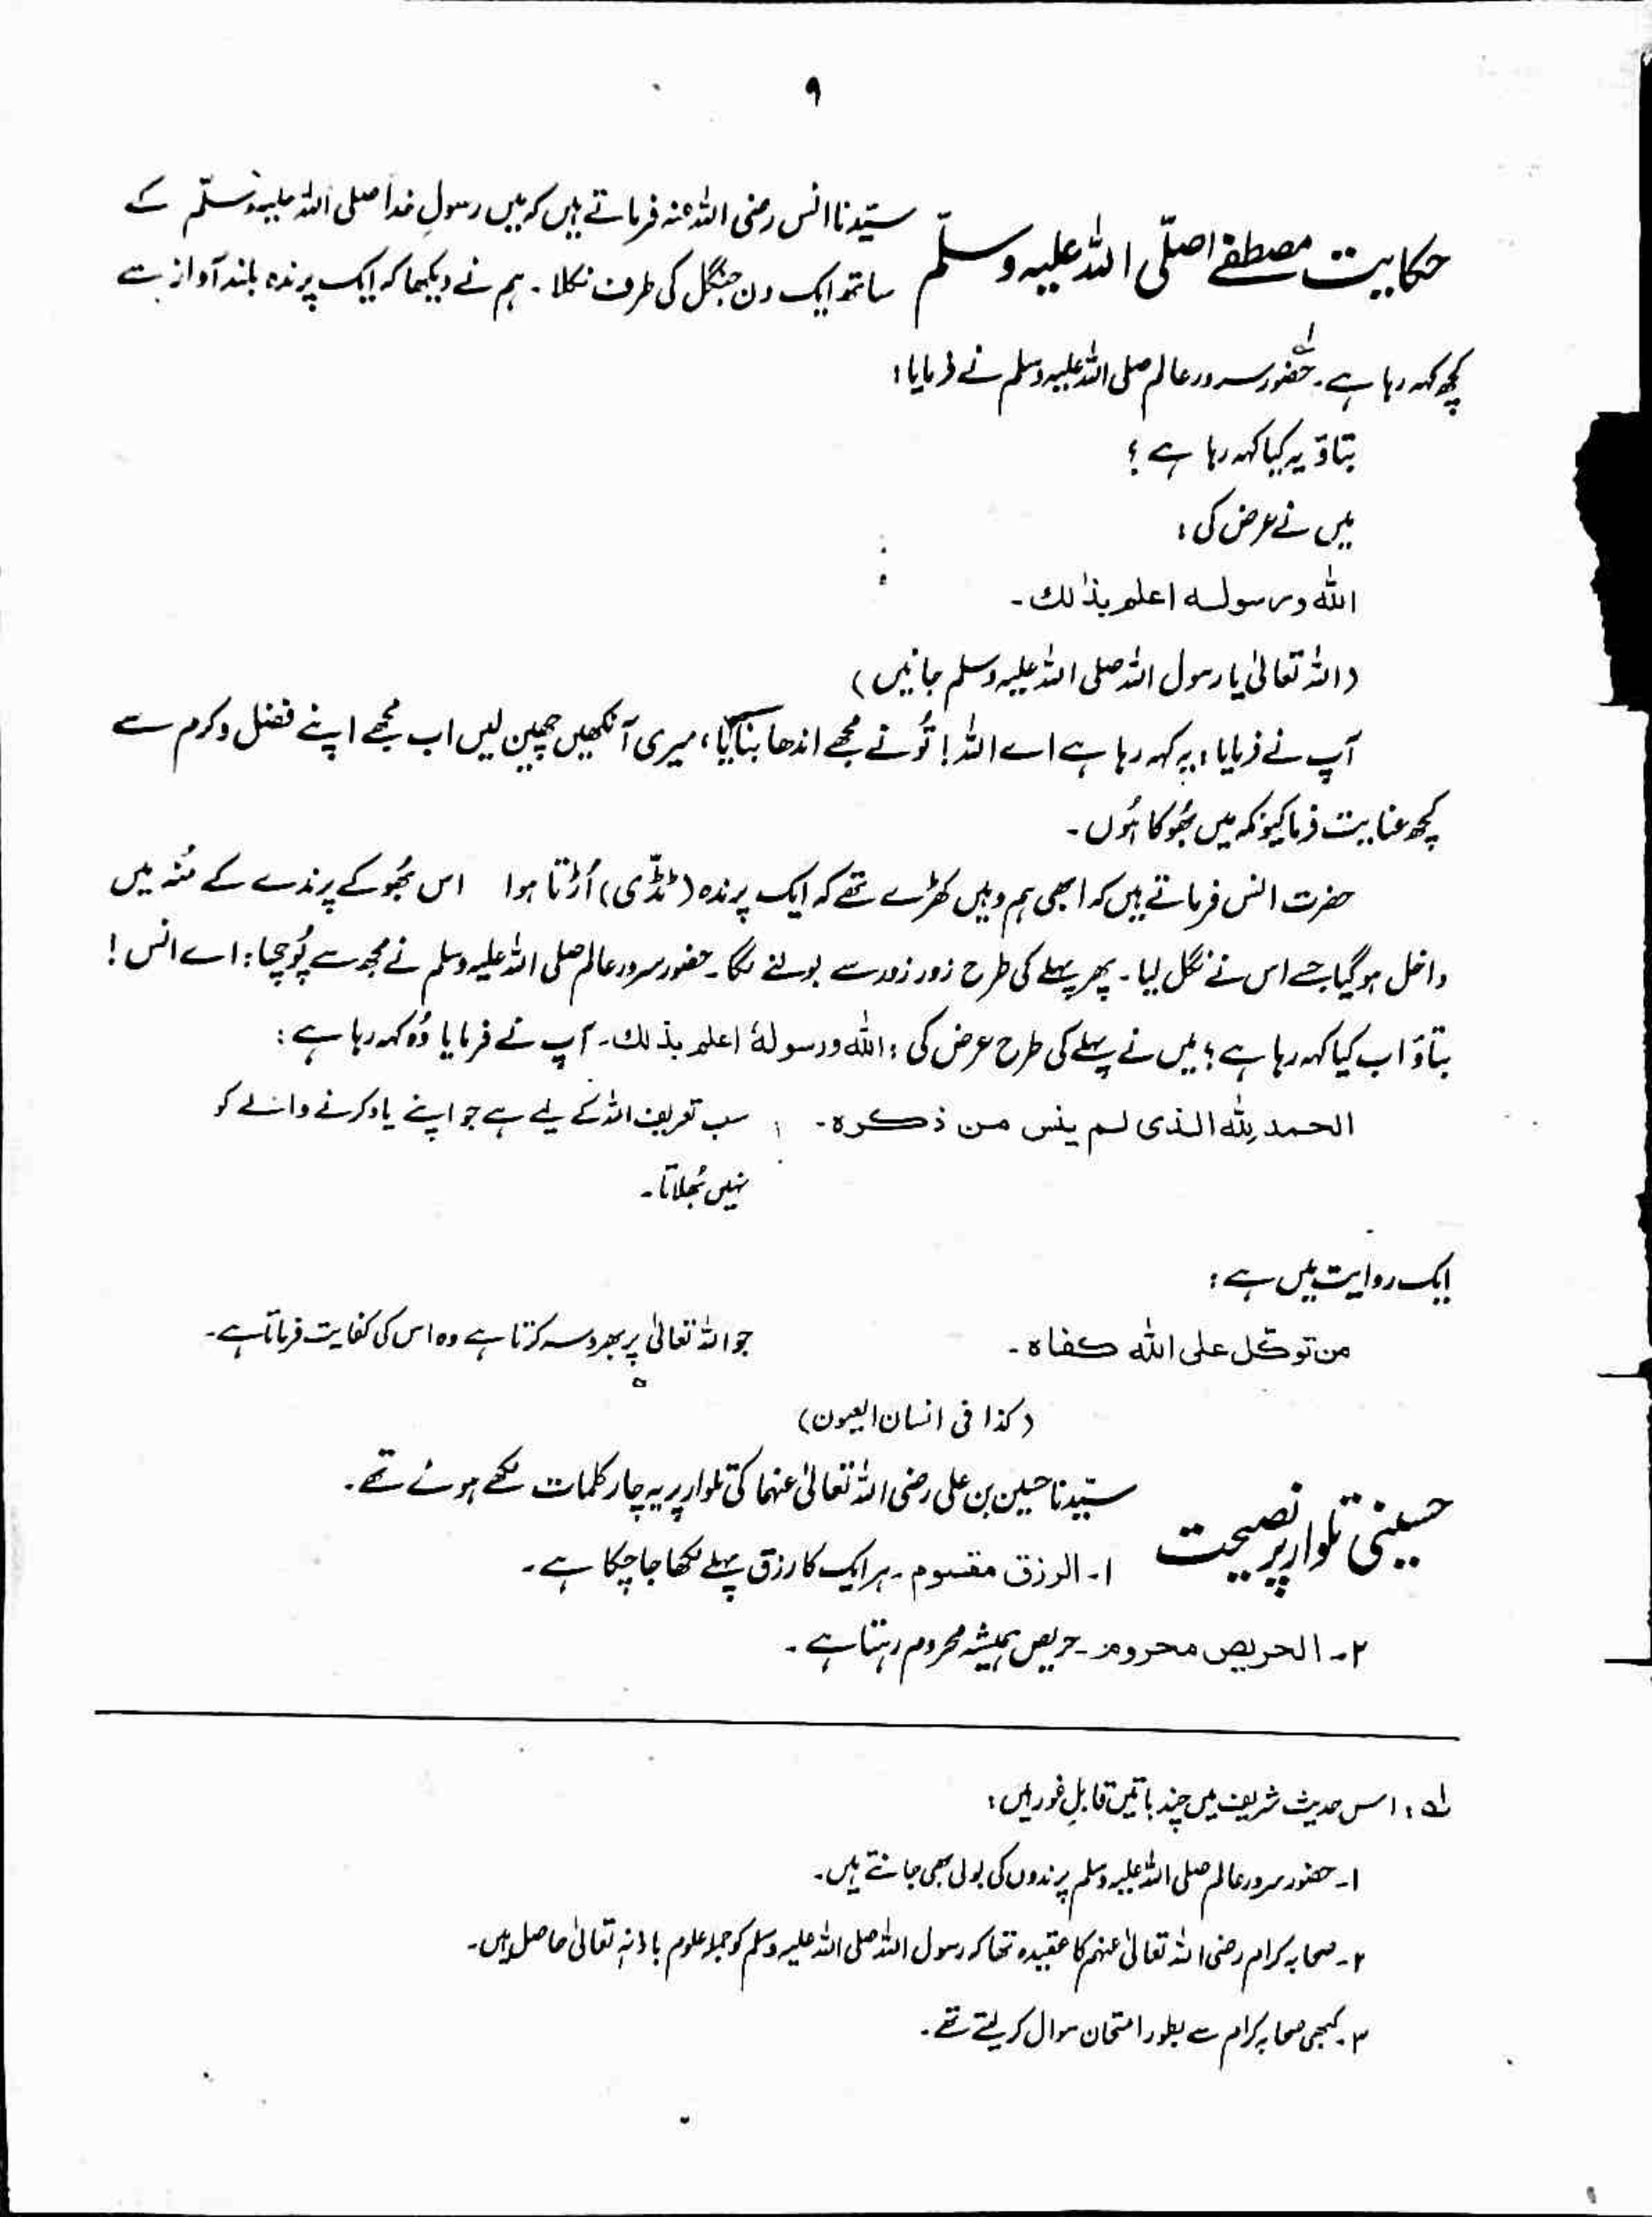 ۹
حکایت مصطفےٰ صلّی اللہ علیہ وسلّم
سیّدنا انس رضی اللہ عنہ فرماتے ہیں کہ میں رسولِ خدا صلی اللہ علیہ وسلّم کے
ساتھ ایک دن جنگل کی طرف نکلا ۔ ہم نے دیکھا کہ ایک پرندہ بلند آواز سے
کچھ کہہ رہا ہے ۔ حضور سرورِ عالم صلی اللہ علیہ وسلم نے فرمایا :
بتاؤ یہ کیا کہہ رہا ہے ؟
میں نے عرض کی :
الله ورسوله اعلم بذٰلك ۔
(اللہ تعالیٰ یا رسول اللہ صلی اللہ علیہ وسلم جانیں)
آپ نے فرمایا : یہ کہہ رہا ہے اے اللہ ! تُو نے مجھے اندھا بنایا ، میری آنکھیں چھین لیں اب مجھے اپنے فضل و کرم سے
کچھ عنایت فرما کیونکہ میں بھُوکا ہُوں ۔
حضرت انس فرماتے ہیں کہ ابھی ہم وہیں کھڑے تھے کہ ایک پرندہ (ٹڈّی) اُڑتا ہوا اس بھُوکے پرندے کے مُنہ میں
داخل ہو گیا جسے اس نے نگل لیا ۔ پھر پہلے کی طرح زور زور سے بولنے لگا ۔ حضور سرور عالم صلی اللہ علیہ وسلم نے مجھ سے پُوچھا : اے انس !
بتاؤ اب کیا کہہ رہا ہے ؟ میں نے پہلے کی طرح عرض کی : الله ورسولهٗ اعلم بذٰلك ۔ آپ نے فرمایا وُہ کہہ رہا ہے :
الحمد لِلّٰه الذى لم ينس من ذكره ۔ سب تعریف اللہ کے لیے ہے جو اپنے یاد کرنے والے کو
نہیں بُھلاتا ۔
ایک روایت میں ہے :
من توكّل على الله كفاه ۔ جو اللہ تعالیٰ پر بھروسہ کرتا ہے وہ اس کی کفایت فرماتا ہے ۔
(کذا فی انسان العیون)
حسینی تلوار پر نصیحت
سیّدنا حسین بن علی رضی اللہ تعالیٰ عنہما کی تلوار پر یہ چار کلمات لکھے ہوئے تھے ۔
۱۔ الرزق مقسوم ۔ ہر ایک کا رزق پہلے لکھا جا چکا ہے ۔
۲۔ الحریص محروم ۔ حریص ہمیشہ محروم رہتا ہے ۔
لہ : اس حدیث شریف میں چند باتیں قابلِ غور ہیں :
۱۔ حضور سرور عالم صلی اللہ علیہ وسلم پرندوں کی بولی بھی جانتے ہیں ۔
۲۔ صحابہ کرام رضی اللہ تعالیٰ عنہم کا عقیدہ تھا کہ رسول اللہ صلی اللہ علیہ وسلم کو جملہ علوم باذنہٖ تعالیٰ حاصل ہیں ۔
۳۔ کبھی صحابہ کرام سے بطور امتحان سوال کر لیتے تھے ۔